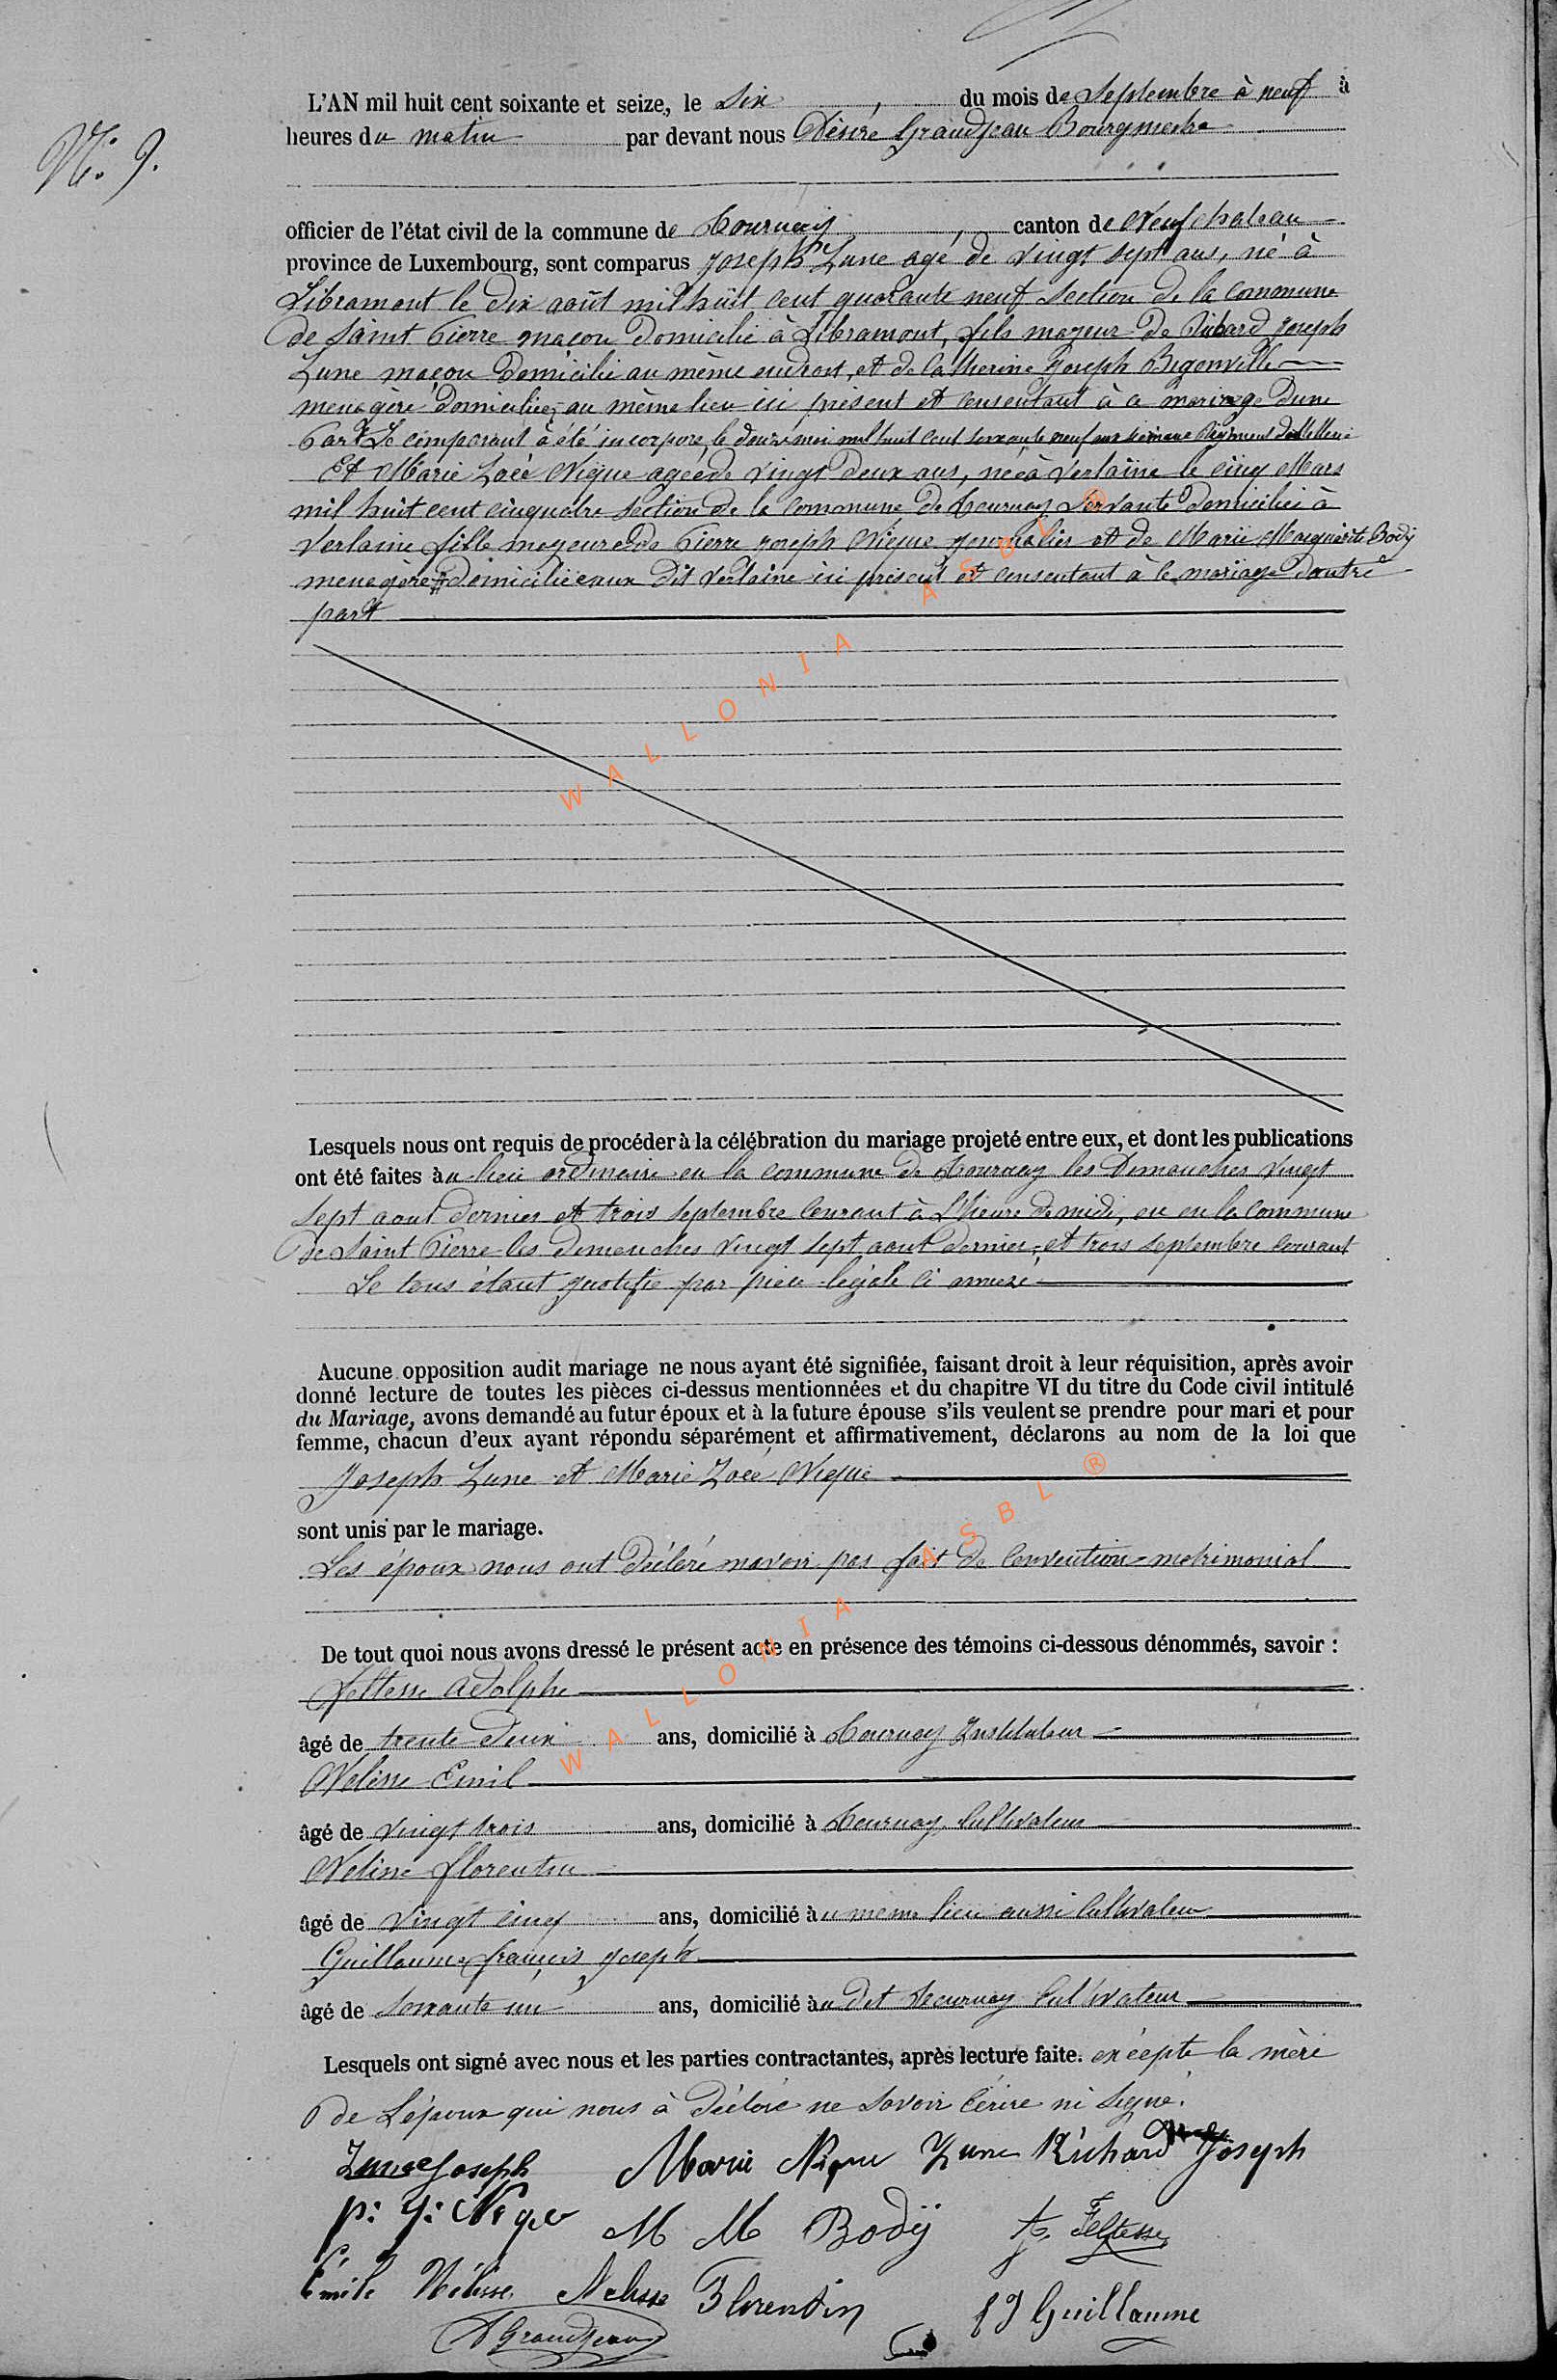 N° 9.
L'AN mil huit cent soixante et seize, le Six, du mois de Septembre à neuf à
heures du matin par devant nous Désiré Grandjean Bourgmestre
officier de l'état civil de la commune de Tournay, canton de Neufchateau
province de Luxembourg, sont comparus Joseph Zune agé de vingt sept ans, né à
Libramont le dix août mil huit cent quarante neuf Section de la commune
de Saint Pierre maçon Domicilié à Libramont, fils majeur de Richard Joseph
Zune maçon Domicilié au même endroit, et de Catherine Joseph Bigonville
menagère domiciliée au même lieu ici présent et consentant à ce mariage d'une
Part Le comparant à été incorporé le douze mai mil huit cent soixante neuf au Régiment
Et Marie Zoée Nique agée de vingt Deux ans, née à Verlaine le cinq Mars
mil huit cent cinquatre Section de la commune de Tournay Servante domiciliée à
Verlaine fille mageure de Pierre Joseph Nique journalier et de Marie Marguerite Bodÿ
menagère domiciliée aux dit Verlaine ici présent et consentant à le mariage d'autre
part
Lesquels nous ont requis de procéder à la célébration du mariage projeté entre eux, et dont les publications
ont été faites au lieu ordinaire en la commune de Tournay les Dimanches vingt
sept aout dernier et trois septembre courant à L'heure de midi, en la commune
de Saint Pierre les dimanches vingt sept aout dernier, et trois septembre courant
Le tous étant justifié par piece légale ci annexé
Aucune opposition audit mariage ne nous ayant été signifiée, faisant droit à leur réquisition, après avoir
donné lecture de toutes les pièces ci-dessus mentionnées et du chapitre VI du titre du Code civil intitulé
du Mariage, avons demandé au futur époux et à la future épouse s'ils veulent se prendre pour mari et pour
femme, chacun d'eux ayant répondu séparément et affirmativement, déclarons au nom de la loi que
Joseph Zune et Marie Zoée Nique
sont unis par le mariage.
Les époux nous ont déclaré navoir pas fait de Convention matrimonial
De tout quoi nous avons dressé le présent acte en présence des témoins ci-dessous dénommés, savoir :
Feltesse Adolphe
âgé de trente Deux ans, domicilié à Tournay Instituteur
Nélisse Emil
âgé de vingt trois ans, domicilié à Tournay Cultivateur
Nelisse Florentin
âgé de vingt cinq ans, domicilié au même lieu aussi Cultivateur
Guillaume françois Joseph
âgé de Soixante un ans, domicilié au dit Tournay Cultivateur
Lesquels ont signé avec nous et les parties contractantes, après lecture faite. excepté la mère
de L'époux qui nous à déclaré ne savoir écrire ni signé.
Zune Joseph Marie Nique Zune Richard Joseph
p: j: Nique M M Bodÿ A. Feltesse
Émile Nélisse Nelisse Florentin f J Guillaume
D Grandjean
WALLONIA ASBL ®
WALLONIA ASBL ®